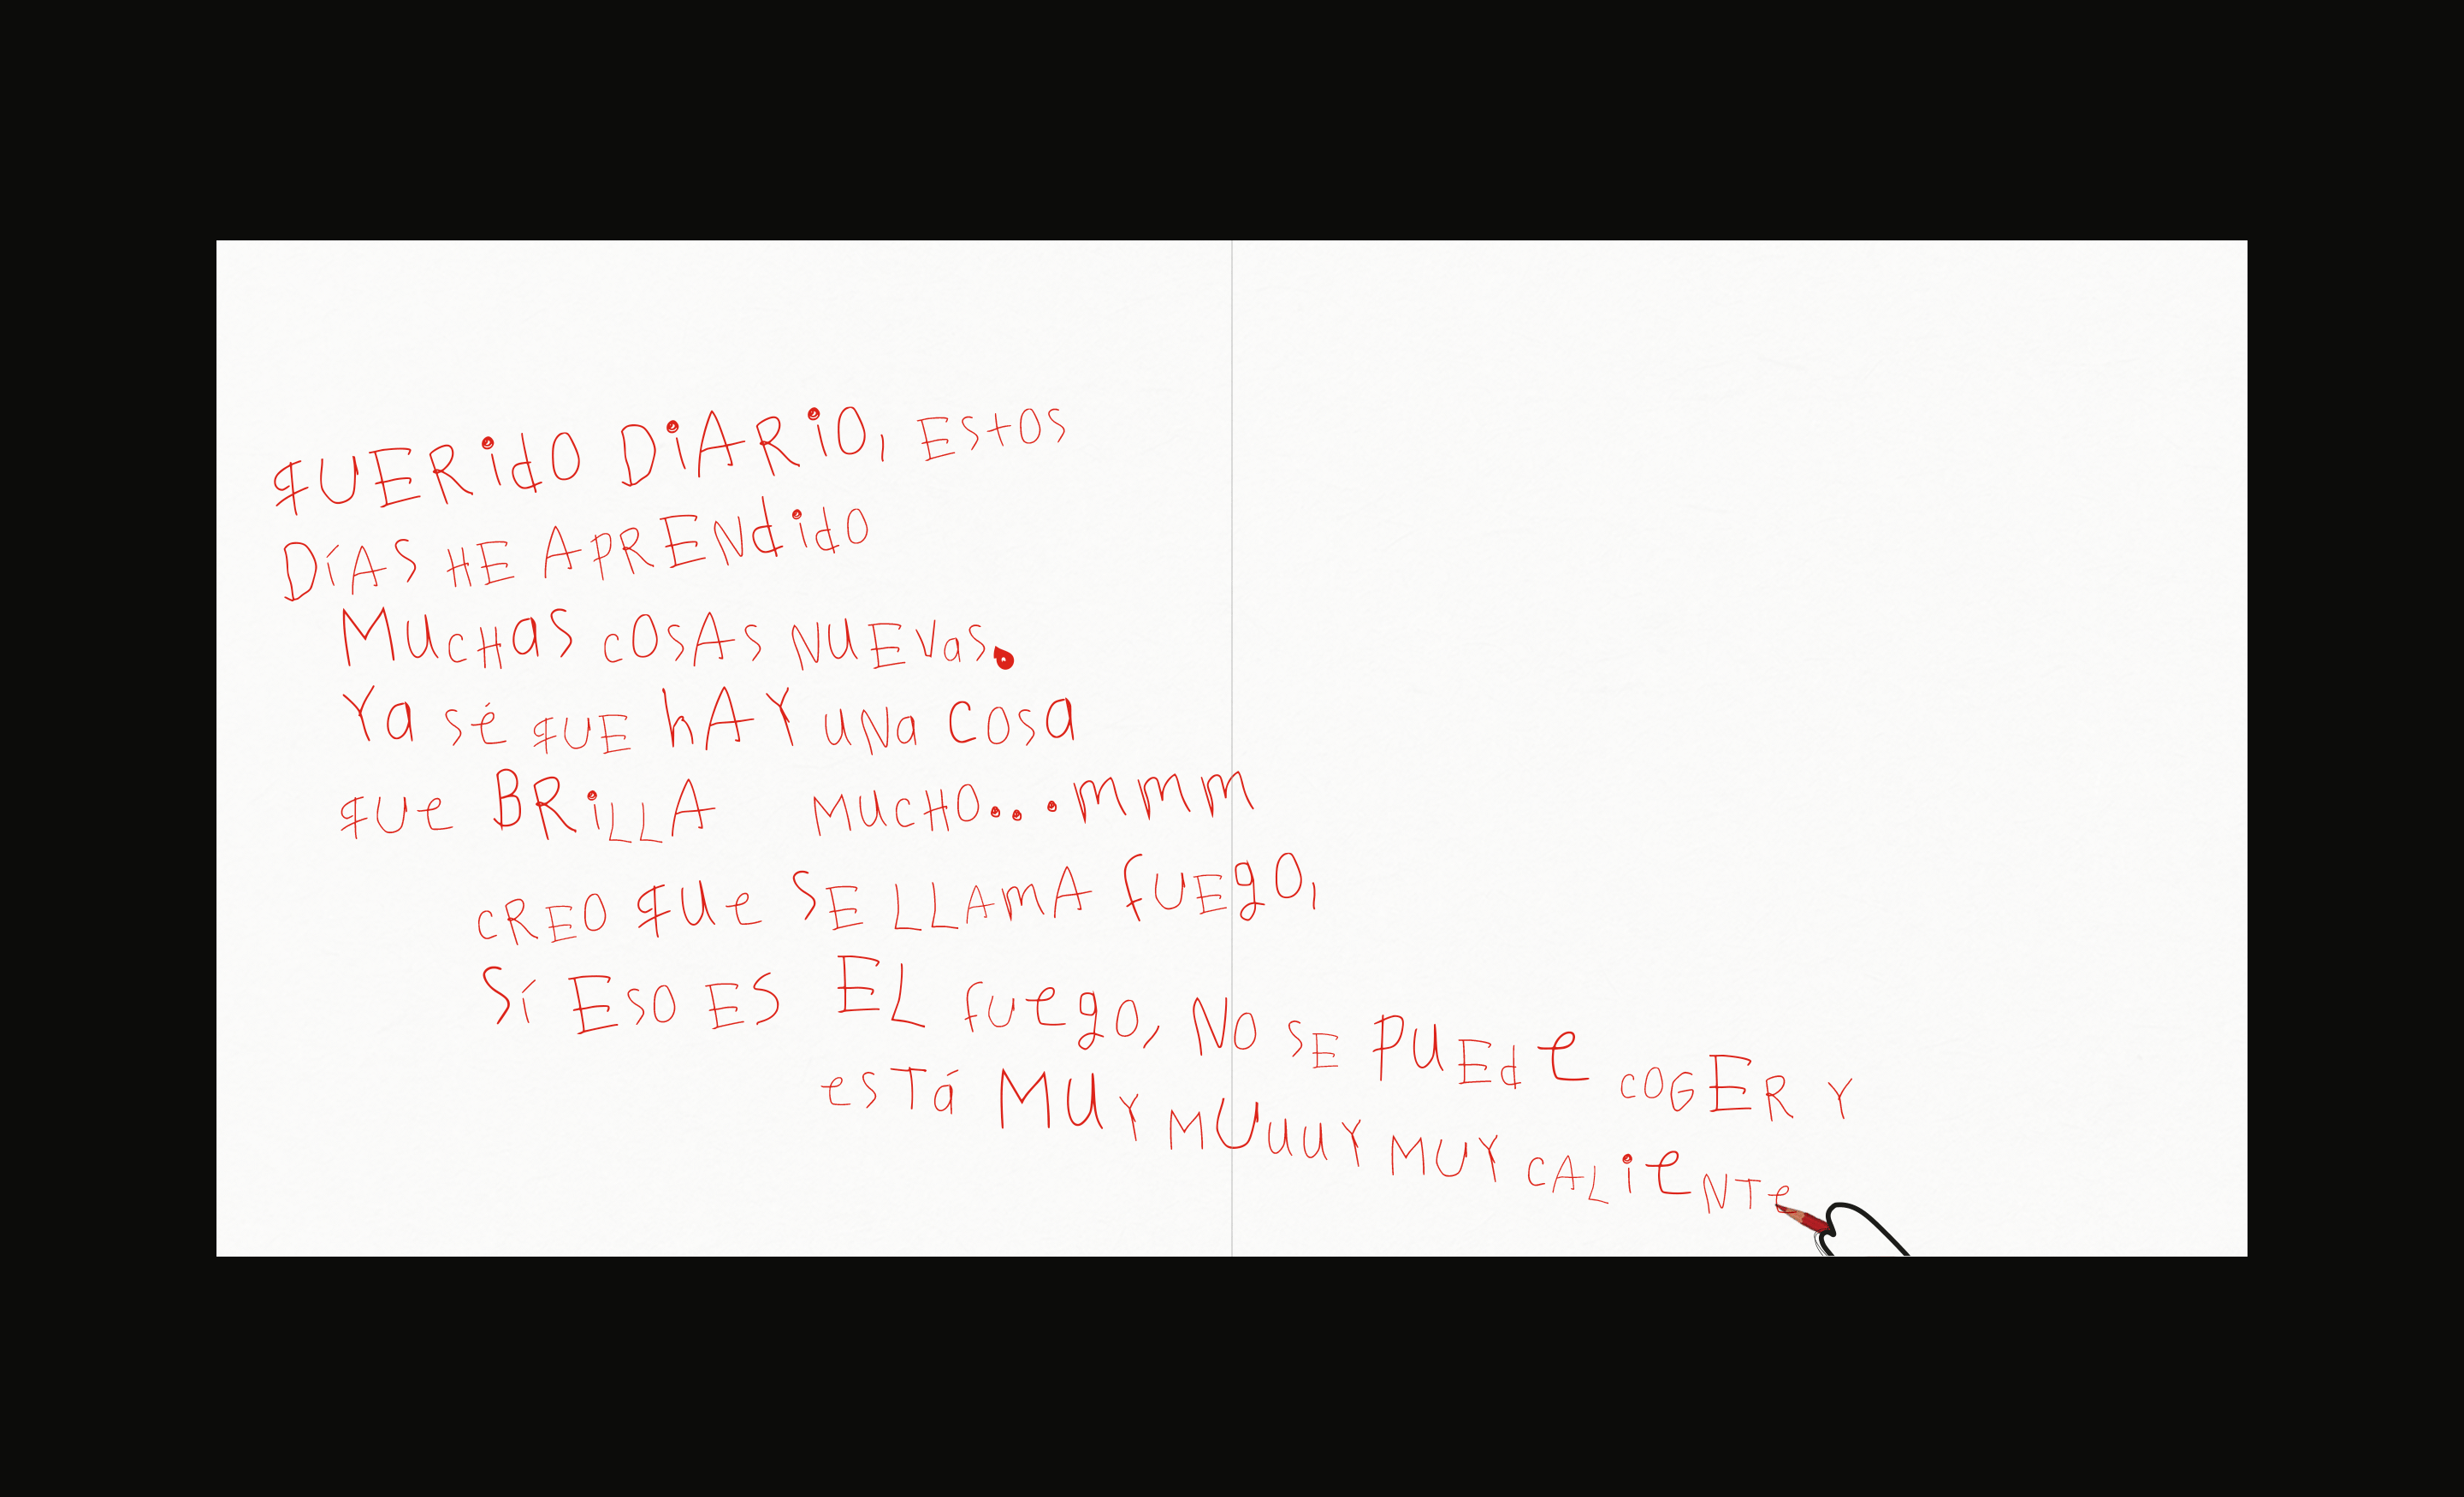 QUERidO DiARiO, EStOS
DíAS HE APRENdido
MUcHaS cOSAS NUEVas.
Ya sé QUE hAY UNa cosa
QUe BRiLLA MUCHO...mmm
CREO QUe SE LLAmA fUEgO,
Sí ESO ES EL fuego, NO SE PUEde COGER Y
esTá MUY MUuuY MUY CALieNTe